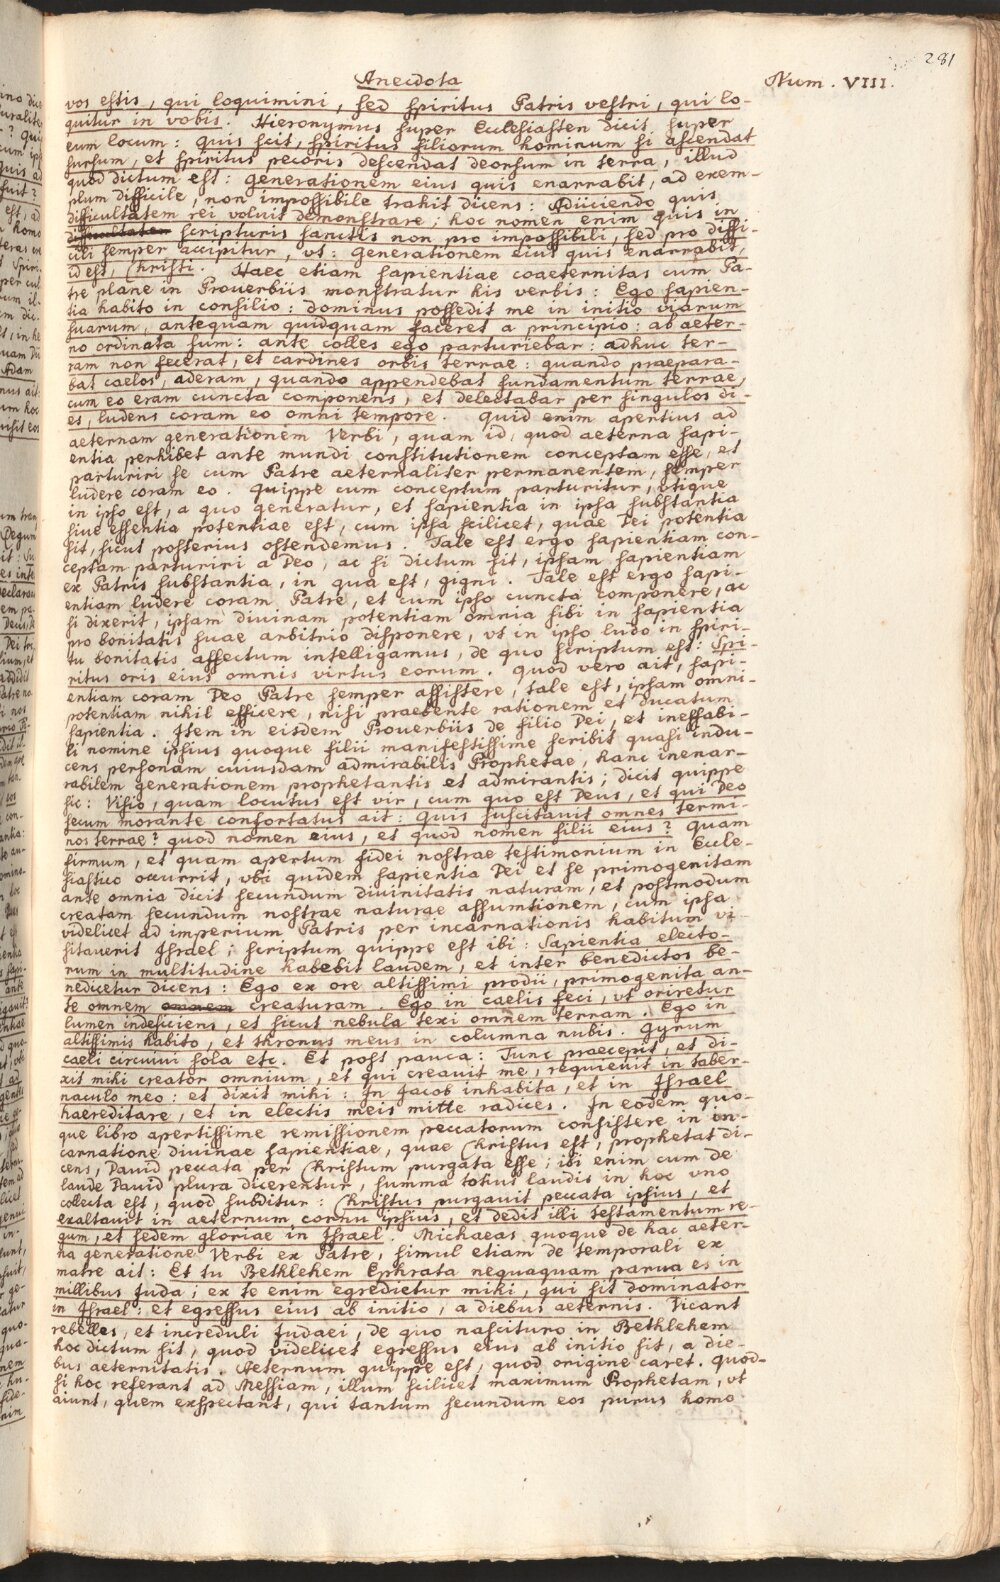 281
Anecdota
Num. VIII.
vos estis, qui loquimini, sed spiritus Patris vestri, qui lo-
quitur in vobis. Hieronymus super Ecclesiasten dicit super
eum locum: Quis scit, spiritus filiorum hominum si ascendat
sursum, et spiritus pecoris descendat deorsum in terra, illud
quod dictum est: generationem eius quis enarrabit, ad exem-
plum difficile, non impossibile trahit dicens: Adiiciendo quis
difficultatem rei voluit demonstrare; hoc nomen enim quis in
difficultatem scripturis sanctis non pro impossibili, sed pro diffi-
cili semper accipitur, vt: generationem eius quis enarrabit,
id est, Christi. Haec etiam sapientiae coaeternitas cum Pa-
tre plane in Prouerbiis monstratur his verbis: Ego sapien-
tia habito in consilio: dominus possedit me in initio viarum
suarum, antequam quidquam faceret a principio: ab aeter-
no ordinata sum: ante colles ego parturiebar: adhuc ter-
ram non fecerat, et cardines orbis terrae: quando praepara-
bat caelos, aderam, quando appendebat fundamentum terrae,
cum eo eram cuncta componens, et delectabar per singulos di-
es, ludens coram eo omni tempore. Quid enim apertius ad
aeternam generationem Verbi, quam id, quod aeterna sapi-
entia perhibet ante mundi constitutionem conceptam esse, et
parturiri se cum Patre aeternaliter permanentem, semper
ludere coram eo. Quippe cum conceptum parturitur, vtique
in ipso est, a quo generatur, et sapientia in ipsa substantia
siue essentia potentiae est, cum ipsa scilicet, quae Dei potentia
sit, sicut posterius ostendemus. Tale est ergo sapientiam con-
ceptam parturiri a Deo, ac si dictum sit, ipsam sapientiam
ex Patris substantia, in qua est, gigni. Tale est ergo sapi-
entiam ludere coram Patre, et cum ipso cuncta componere, ac
si dixerit, ipsam divinam potentiam omnia sibi in sapientia
pro bonitatis suae arbitrio disponere, vt in ipso ludo in spiri-
tu bonitatis affectum intelligamus, de quo scriptum est: Spi-
ritus oris eius omnis virtus eorum. Quod vero ait, sapi-
entiam coram Deo Patre semper assistere, tale est, ipsam omni-
potentiam nihil efficere, nisi praebente rationem et ducatum
sapientia. Item in eisdem Prouerbiis de filio Dei, et ineffabi-
li nomine ipsius quoque filii manifestissime scribit quasi indu-
cens personam cuiusdam admirabilis Prophetae, hanc inenar-
rabilem generationem prophetantis et admirantis; dicit quippe
sic: Visio, quam locutus est vir, cum quo est Deus, et qui Deo
secum morante confortatus ait: Quis suscitauit omnes termi-
nos terrae? quod nomen eius, et quod nomen filii eius? Quam
firmum, et quam apertum fidei nostrae testimonium in Eccle-
siastico occurrit, vbi quidem sapientia Dei et se primogenitam
ante omnia dicit secundum divinitatis naturam, et postmodum
creatam secundum nostrae naturae assumtionem, cum ipsa
videlicet ad imperium Patris per incarnationis habitum vi-
sitauerit Israel; scriptum quippe est ibi: Sapientia electo-
rum in multitudine habebit laudem, et inter benedictos be-
nedicetur dicens: Ego ex ore altissimi prodii, primogenita an-
te omnem omnem creaturam. Ego in caelis feci, vt oriretur
lumen indeficiens, et sicut nebula texi omnem terram. Ego in
altissimis habito, et thronus meus in columna nubis. Gyrum
caeli circuivi sola etc. Et post pauca: Tunc praecepit, et di-
xit mihi creator omnium, et qui creauit me, requieuit in taber-
naculo meo: et dixit mihi: In Jacob inhabita, et in Israel
haereditare, et in electis meis mitte radices. In eodem quo-
que libro apertissime remissionem peccatorum consistere in in-
carnatione divinae sapientiae, quae Christus est, prophetat di-
cens, Dauid peccata per Christum purgata esse; ibi enim cum de
laude Dauid plura dicerentur, summa totius laudis in hoc vno
collecta est, quod subditur: Christus purgavit peccata ipsius, et
exaltauit in aeternum cornu ipsius, et dedit illi testamentum re-
gum, et sedem gloriae in Israel. Michaeas quoque de hac aeter-
na generatione Verbi ex Patre, simul etiam de temporali ex
matre ait: Et tu Bethlehem Ephrata nequaquam parua es in
millibus Juda; ex te enim egredietur mihi, qui sit dominator
in Israel: et egressus eius ab initio, a diebus aeternis. Dicant
rebelles, et increduli Judaei, de quo nascituro in Bethlehem
hoc dictum sit, quod videlicet egressus eius ab initio sit, a die-
bus aeternitatis. Aeternum quippe est, quod origine caret. Quod-
si hoc referant ad Messiam, illum scilicet maximum Prophetam, vt
aiunt, quem exspectant, qui tantum secundum eos purus homo